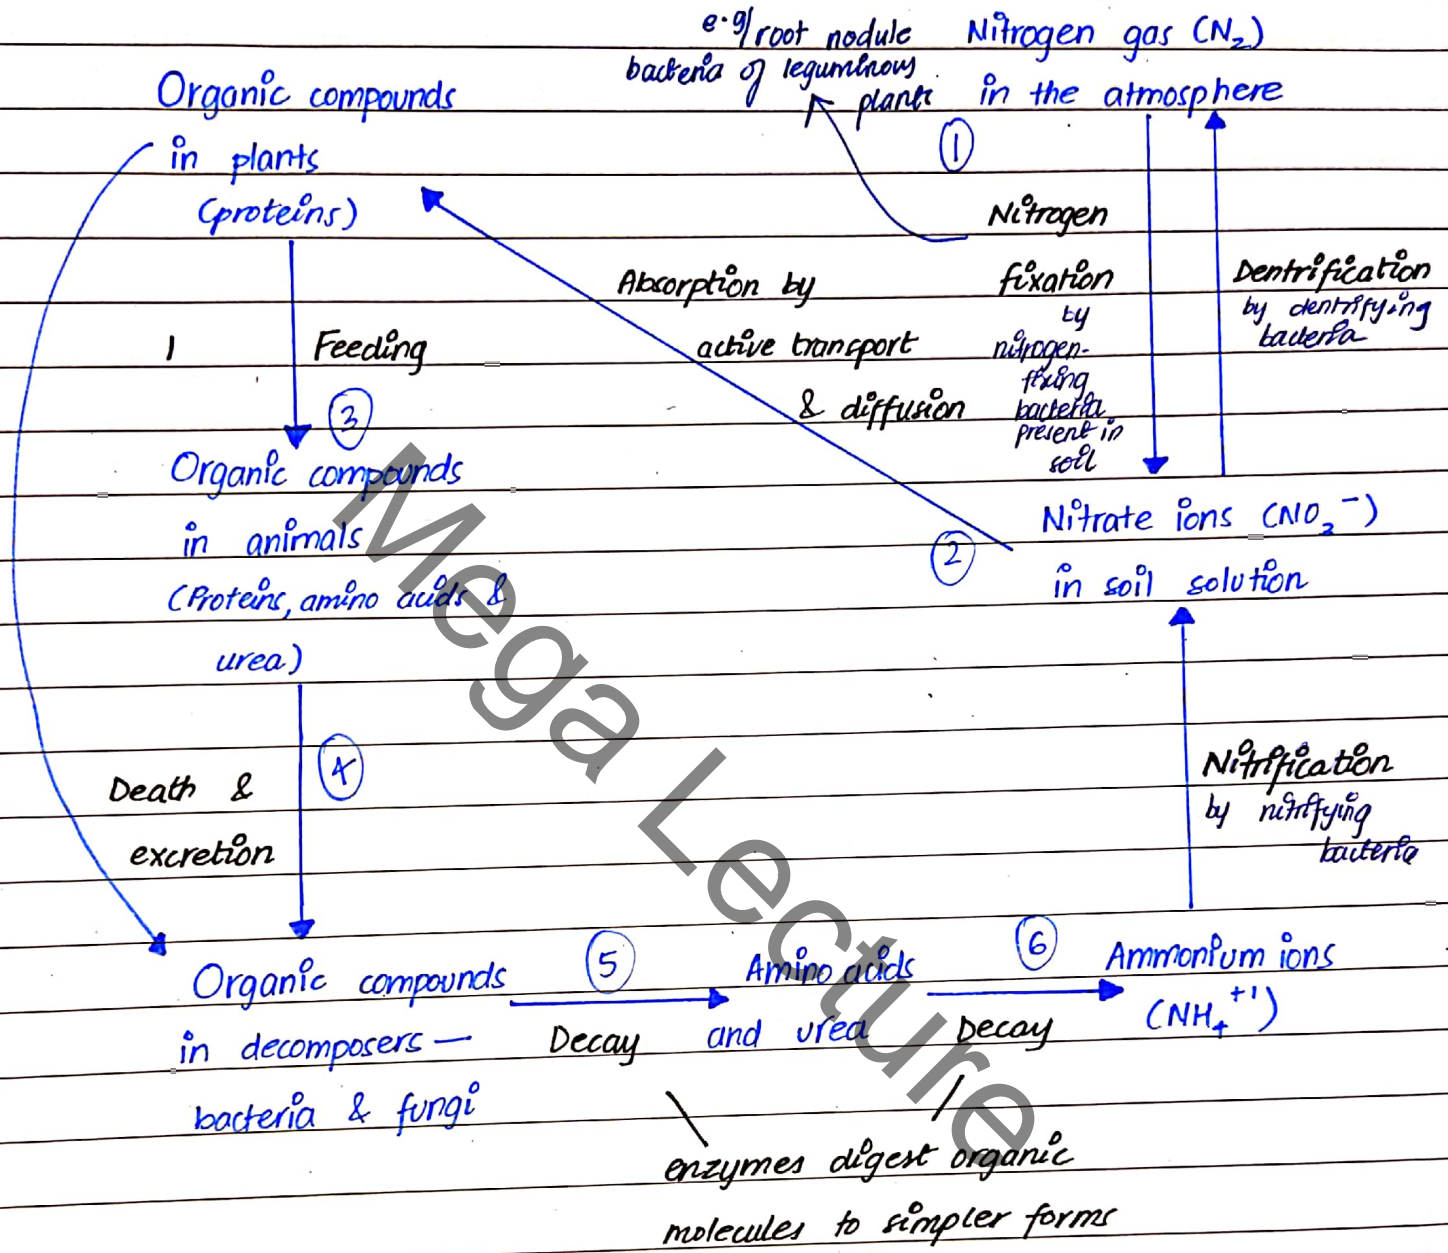 e.g/ root nodule
bacteria of leguminous
plants
Nitrogen gas (N₂)
in the atmosphere
Organic compounds
in plants
(proteins)
1
Nitrogen
fixation
by
nitrogen-
fixing
bacteria
present in
soil
Dentrification
by dentrifying
bacteria
Absorption by
active transport
& diffusion
1
Feeding
3
Organic compounds
in animals
(Proteins, amino acids &
urea)
2
Nitrate ions (NO₃⁻)
in soil solution
4
Death &
excretion
Nitrification
by nitrifying
bacteria
Organic compounds
in decomposers —
bacteria & fungi
5
Decay
Amino acids
and urea
6
Decay
Ammonium ions
(NH₄⁺¹)
enzymes digest organic
molecules to simpler forms
Mega Lecture